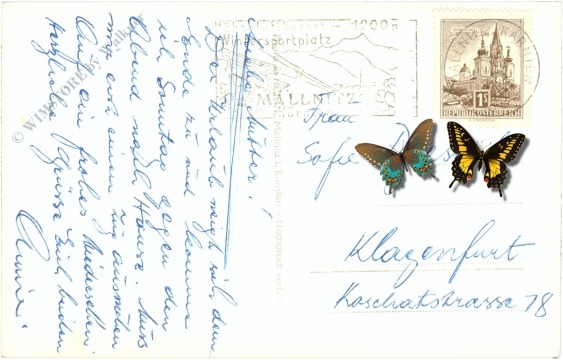 Höhenluftkurort – 1200 m
Wintersportplatz
MALLNITZ
MALLNITZ KÄRNTEN
1S
REPUBLIK ÖSTERREICH
Liebe Mutter!
Der Urlaub neigt sich dem
Ende zu und komme
ich Sonntag gegen den
Abend nach Hause. Muss
mir erst einen
Auf ein frohes Wiedersehen.
Herzliche Grüsse Euch beiden
Annie.
Frau
Sofie
Klagenfurt
Koschatstrasse 78
© WIMSTORE by Walker